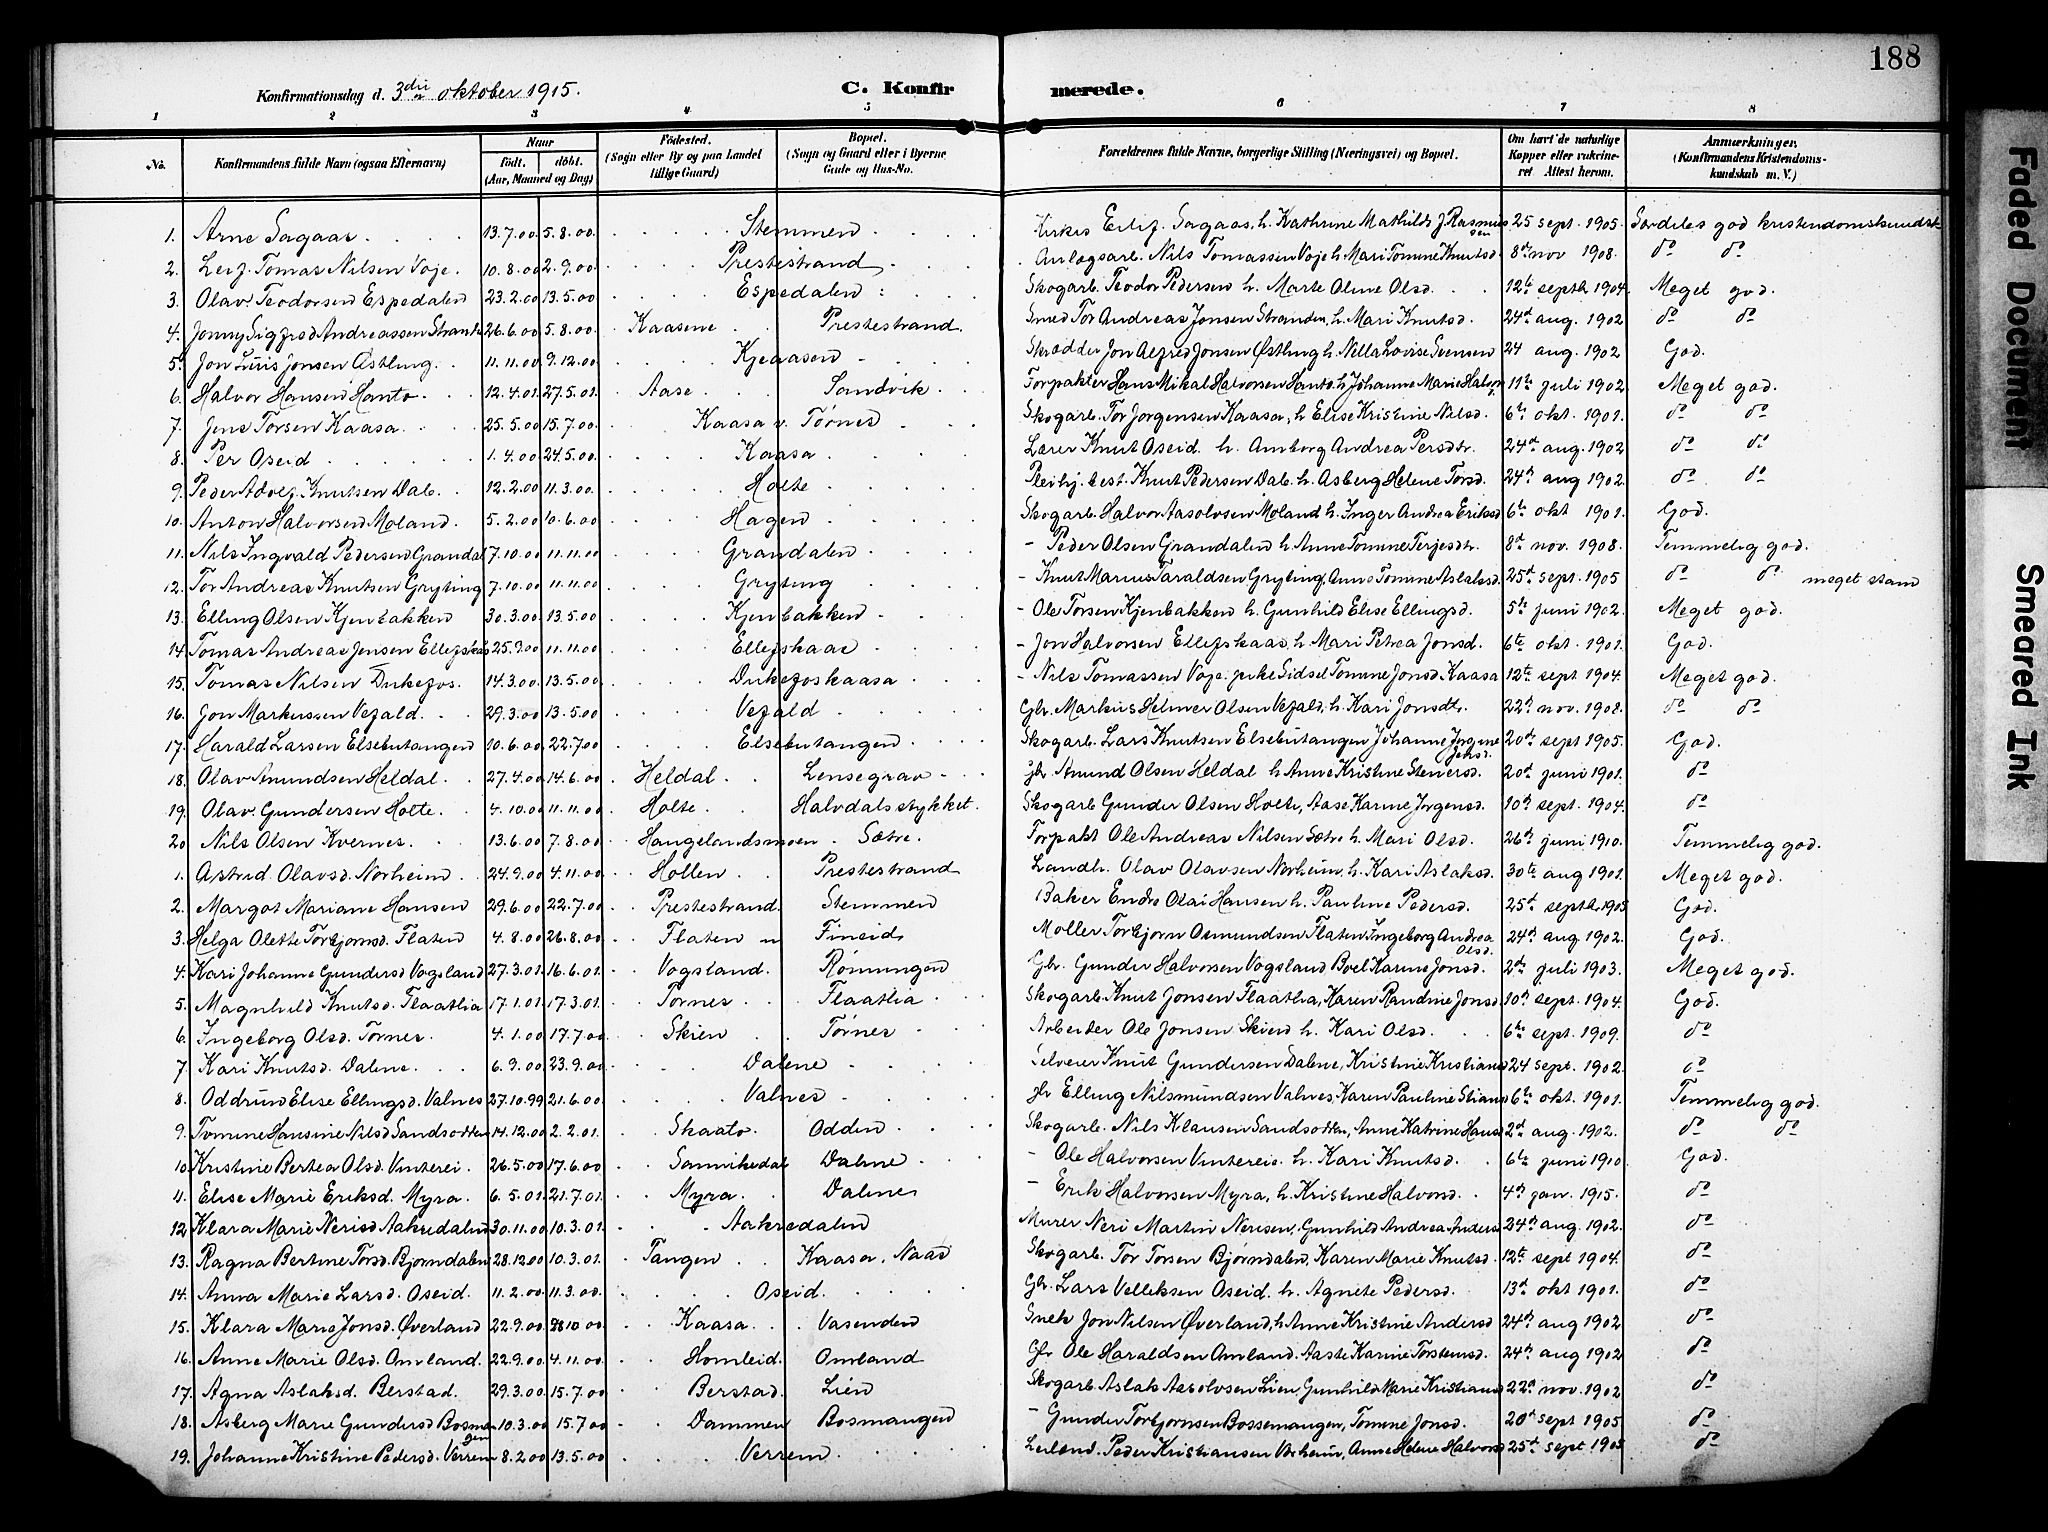 188
Konfirmationsdag d. 3die oktober 1915.
C. Konfirmerede.
1 2 3 4 5 6 7 8
No. Konfirmandens fulde Navn (ogsaa Efternavn) Naar født. døbt. (Aar, Maaned og Dag) Fødested. (Sogn eller By og paa Landet tillige Gaard) Bopæl. (Sogn og Gaard eller i Byerne Gade og Hus-No. Forældrenes fulde Navne, borgerlige Stilling (Næringsvei) og Bopæl. Om havt de naturlige Kopper eller vakcineret Attest herom. Anmærkninger. (Konfirmandens Kristendomskundskab m. V.)
1. Arne Sagaas 13.7.00 5.8.00 Stemmen Kirkes Eilif Sagaas, h. Kathrine Mathilde J. Rasmussen 25 sept. 1905. Særdeles god kristendomskundsk
2. Leif Tomas Nilsen Voje. 10.8.00 2.9.00 Prestestrand Anlægsarb. Nils Tomassen Voje h. Mari Tomine Knutsd. 8de nov 1908. do do
3. Olav Teodorsen Espedalen 23.2.00 13.5.00 Espedalen Skogarb. Teodor Pedersen h. Marte Oline Olsd. 12te septb 1904. Meget god.
4. Jonny Sigfred Andreassen Strande 26.6.00 5.8.00 Kaasene Prestestrand. Smed Tor Andreas Jonsen Stranden, h. Mari Knutsd. 24de aug. 1902 do do
5. Jon Luis Jonsen Østling. 11.11.00 9.12.00 Kjeaasen Skrædder Jon Alfred Jonsen Østling h. Nella Lovise Svensen 24 aug. 1902 God.
6. Halvor Hansen Hanto 12.4.01 27.5.01 Aase Sandvik Forpakter Hans Mikal Halvorsen Hanto, h. Johanne Marie Halvor 11te juli 1902. Meget god.
7. Jens Torsen Kaasa 25.5.00 15.7.00 Kaasa v. Tørnes Skogarb. Tor Jorgensen Kaasa, h. Elise Kristine Nilsd. 6te okt. 1901. do do
8. Per Oseid 1.4.00 24.5.00 Kaasa Lærer Knut Oseid h. Amborg Andrea Persdtr. 24de aug. 1902 do do
9. Peder Adolf Knutsen Dal. 12.2.00 11.3.00 Holte Pleihj. best. Knut Pedersen Dal. h. Asberg Helene Torsd. 24de aug 1902. do do
10. Anton Halvorsen Moland. 5.2.00 10.6.00 Hagen Skogarb. Halvor Aasolvsen Moland h. Inger Andrea Eriksd 6te okt 1901. God.
11. Nils Ingvald Pedersen Grandal 7.10.00 11.11.00 Grandalen - Peder Olsen Grandalen h. Anne Tomine Terjesdtr. 8de nov. 1908. Temmelig god.
12. Tor Andreas Knutsen Gryting 7.10.00 11.11.00 Gryting - Knut Marius Taraldsen Gryting, Anne Tomine Aslaksd. 25de sept. 1905 do do meget stam
13. Elling Olsen Kjenbakken 30.3.00 13.5.00 Kjenbakken - Ole Torsen Kjenbakken h. Gunhild Elise Ellingsd. 5te juni 1902. Meget god.
14. Tomas Andreas Jonsen Ellefskas 25.9.00 11.11.00 Ellefskaas - Jon Halvorsen Ellefskaas, h. Mari Petrea Jonsd. 6te okt. 1901. God.
15. Tomas Nilsen Dukefos. 14.3.00 13.5.00 Dukefoskaasa - Nils Tomassen Voje. pike Sidsel Tomine Jonsd. Kaasa 12te sept 1904. Meget god.
16. Jon Markussen Vefald. 29.3.00 13.5.00 Vefald Gbr. Markus Helmer Olsen Vefald, h. Kari Jonsdtr. 22de nov. 1908. do do
17. Harald Larsen Elsebutangen 10.6.00 22.7.00 Elsebutangen Skogarb. Lars Knutsen Elsebutangen Johanne Jorgine Jensd. 20de sept 1905. God.
18. Olav Amundsen Heldal. 27.4.00 14.6.00 Heldal Lensegrav gbr. Amund Olsen Heldal h. Anne Kristine Stenersd. 20de juni 1901. do
19. Olav Gundersen Holte. 4.10.00 11.11.00 Holte. Halvdalsstykket. Skogarb Gunder Olsen Holte, Aase Karine Jorgensd. 10de sept. 1904. do
20 Nils Olsen Kvernes. 13.6.00 7.8.00 Haugelandsmoen Sætre. Forpakt Ole Andreas Nilsen Sætre h. Mari Olsd. 26de juni 1910. Temmelig god.
1. Astrid Olavsd. Norheim 24.9.00 4.11.00 Hollen Prestestrand Landh. Olav Olavsen Norheim, h. Kari Aslaksd. 30te aug 1901. Meget god.
2. Margot Mariane Hansen 29.6.00 22.7.00 Prestestrand. Stemmen Baker Endre Olai Hansen h. Pauline Pedersd. 25de septb. 1905 God.
3. Helga Olette Torbjornsd. Flaten 4.8.00 26.8.00 Flaten Fineid Moller Torbjorn Osmundsen Flaten Ingeborg Andrea Olsd. 24de aug. 1902. God.
4. Kari Johanne Gundersd Vogsland 27.3.01 16.6.01. Vogsland. Rønningen Gbr. Gunder Halvorsen Vogsland Boel Karine Jonsd. 2de juli 1903. Meget god.
5. Magnhild Knutsd. Flaatlia 17.1.01 17.3.01. Tornes Flaatlia Skogarb. Knut Jonsen Flaatlia, Karen Randine Jonsd 10de sept. 1904. God.
6. Ingeborg Olsd. Tornes. 4.1.00 17.7.00 Skien Tørnes Arbeider Ole Jonsen Skien h. Kari Olsd. 6te sept. 1909. do
7. Kari Knutsd. Dalene. 6.9.00 23.9.00 Dalene Selveier Knut Gundersen Dalene, Kristine Kristiansd 24 sept. 1902. do
8. Oddrun Elise Ellingsd. Valnes 27.10.99 21.6.00 Valnes gbr Elling Nilsmundsen Valnes, Karen Pauline Stians 6te okt. 1901. Temmelig god.
9. Tomine Hansine Nilsd Sandsodden 14.12.00 2.2.01. Skaato. Odden Skogarb. Nils Klausen Sandsodden, Anne Katrine Hansd 2de aug. 1902. do do
10. Kristine Bertea Olsd. Vinterei. 26.5.00 17.6.00 Sannikedal Dalene - Ole Halvorsen Vintereie. h. Kari Knutsd. 6te juni 1910 God.
11. Elise Marie Eriksd. Myra. 6.5.01. 21.7.01. Myra. Dalene - Erik Halvorsen Myra, h. Kristine Halvorsd. 4de jan. 1915. do
12. Klara Marie Nerisd Aakredalen 30.11.00 10.3.01. Aakredalen Murer Neri Martin Nerisen, Gunhild Andrea Anders 24de aug. 1902. do
13. Ragna Bertine Torsd. Bjorndalen 28.12.00 10.3.01. Tangen Kaasa, Naas Skogarb. Tor Torsen Bjørndalen, Karen Marie Knutsd. 12te sept 1904. do
14. Anna Marie Larsd. Oseid. 11.2.00 11.3.00. Oseid. Gbr. Lars Velleksen Oseid. h. Agnete Pedersd. 13de okt 1901. do
15. Klara Marie Jonsd. Øverland 22.9.00. 10.00 Kaasa. Vasenden Snek Jon Nilsen Øverland, h Anne Kristine Andersd 24de aug 1902 do
16. Anne Marie Olsd. Omland. 22.9.00. 4.11.00. Homleid. Omland Gbr Ole Haraldsen Omland. Aaste Karine Torstensd. 24de aug 1902 do
17. Agna Aslaksd. Berstad. 29.3.00. 15.7.00 Berstad. Lien Skogarb Aslak Aasolvsen Lien, Gunhild Marie Kristiansd 22de nov. 1902 do
18. Asberg Marie Gundersd Bosmangen 10.3.00 15.7.00 Dammen Bosmangen - Gunder Torbjornsen Bossemangen, Tomine Jonsd. 20de sept 1905 do
19. Johanne Kristine Pedersd. Verrem 8.2.00 13.5.00 Verrem Leilend. Peder Kristiansen Verheim, Anne Helene Halvorsd 25de sept 1905 do
Faded Document
Smeared Ink